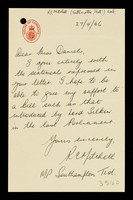 27/4/66
Dear Miss Daniel,
I agree entirely with
the sentiments expressed in
your letter. I hope to be
able to give my support to
a Bill such as that
introduced by Lord Silkin
in the last Parliament.
Yours sincerely,
R C Mitchell
MP Southampton Test.